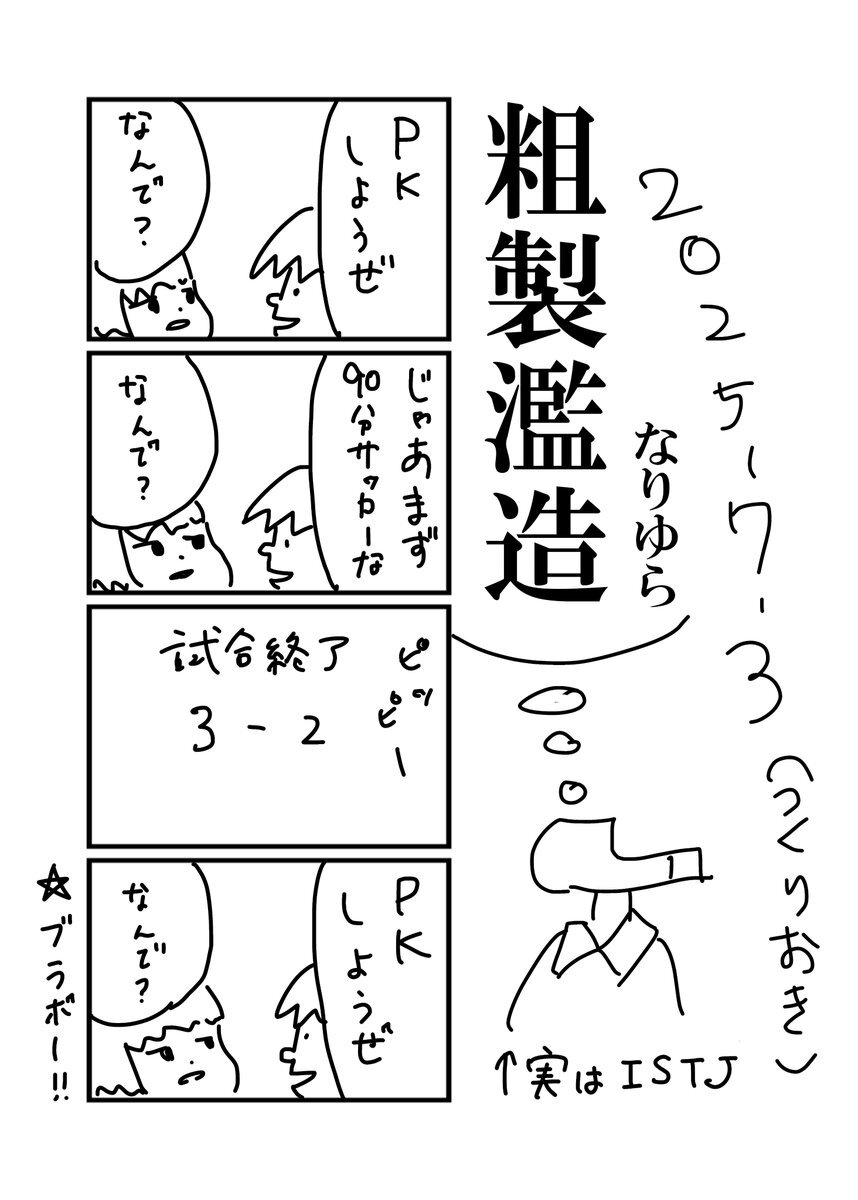 2025-7-3(つくりおき)
粗製濫造
なりゆら
↑実はISTJ
PK
しようぜ
なんで?
じゃあまず
90分サッカーな
なんで?
ピピッー
試合終了
3-2
PK
しようぜ
なんで?
☆ブラボー!!